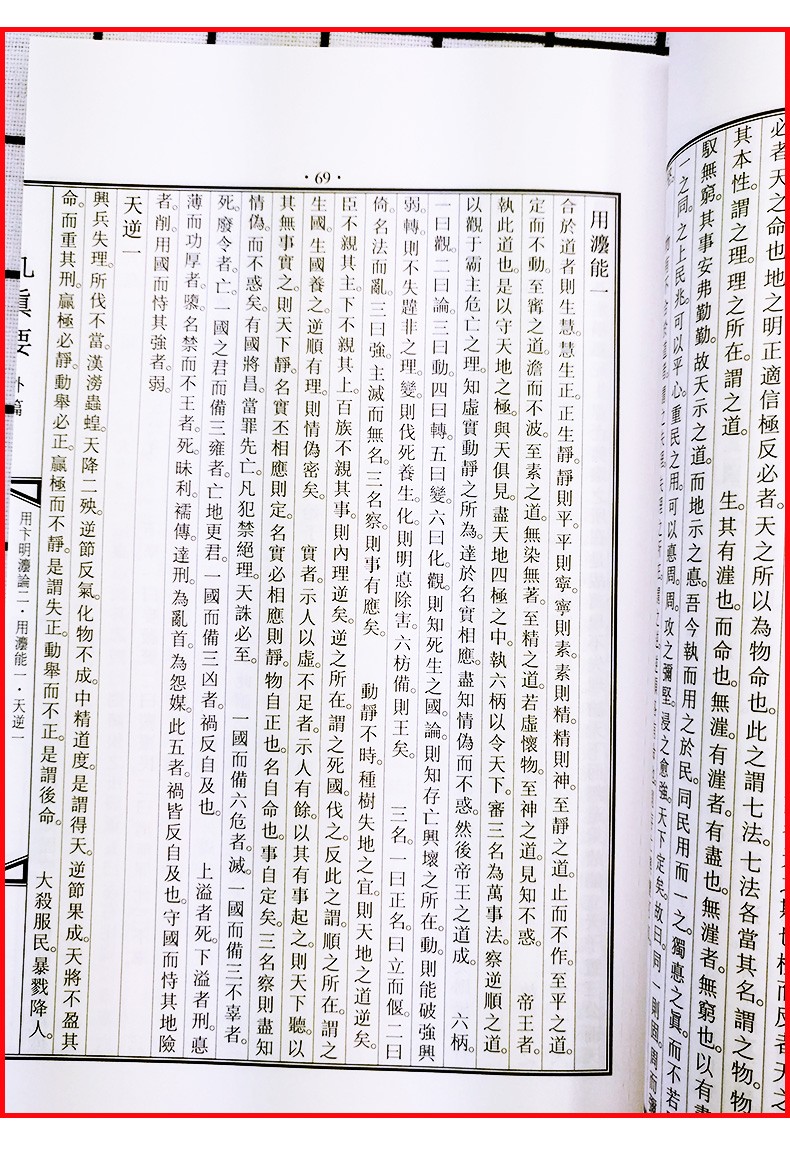 必者天之命也地之明正適信極反必者天之所以為物命也此之謂七法七法各當其名謂之物物
其本性謂之理理之所在謂之道　生其有漄也而命也無漄有漄者有盡也無漄者無窮也以有
馭無窮其事安弗勤勤故天示之道而地示之悳吾今執而用之於民同民用而一之獨悳之眞而不若
一之同之上民兆可以平心重民之用可以悳周周攻之彌堅浸之愈強天下定矣故曰同一則固固而
·69·
用灋能一
合於道者則生慧。慧生正。正生靜。靜則平。平則寧。寧則素。素則精。精則神。至靜之道。止而不作。至平之道。
定而不動。至寗之道。澹而不波。至素之道。無染無著。至精之道。若虛懷物。至神之道。見知不惑　帝王者。
執此道也。是以守天地之極。與天俱見。盡天地四極之中。執六柄以令天下。審三名為萬事法。察逆順之道
以觀于霸主危亡之理。知虛實動靜之所為。達於名實相應。盡知情偽而不惑。然後帝王之道成　六柄。
一曰觀。二曰論。三曰動。四曰轉。五曰變。六曰化。觀則知死生之國。論則知存亡興壞之所在。動則能破強興
弱。轉則不失韙非之理。變則伐死養生。化則明悳除害。六枋備則王矣　三名。一曰正名曰立而偃。二曰
倚名法而亂。三曰強主滅而無名。三名察則事有應矣　動靜不時。種樹失地之宜。則天地之道逆矣。
臣不親其主。下不親其上。百族不親其事。則內理逆矣。逆之所在。謂之死國。伐之。反此之謂順之所在。謂之
生國。生國養之。逆順有理。則情偽密矣　實者。示人以虛。不足者。示人有餘。以其有事起之則天下聽。以
其無事實之則天下靜。名實丕相應則定。名實必相應則靜。物自正也。名自命也。事自定矣。三名察則盡知
情偽而不惑矣。有國將昌。當罪先亡。凡犯禁絕理。天誅必至　一國而備六危者。滅。一國而備三不辜者。
死。廢令者。亡。一國之君而備三雍者。亡地更君。一國而備三凶者。禍反自及也　上溢者死。下溢者刑。悳
薄而功厚者。隳。名禁而不王者。死。昧利。襦傳。達刑。為亂首。為怨媒。此五者。禍皆反自及也。守國而恃其地險
者。削。用國而恃其強者。弱。
天逆一
興兵失理。所伐不當。漢澇蟲蝗。天降二殃。逆節反氣。化物不成。中精道度。是謂得天。逆節果成。天將不盈其
命。而重其刑。贏極必靜。動舉必正。贏極而不靜。是謂失正。動舉而不正。是謂後命　大殺服民。暴戮降人。
眞要　外篇
用卞明灋論二·用灋能一·天逆一